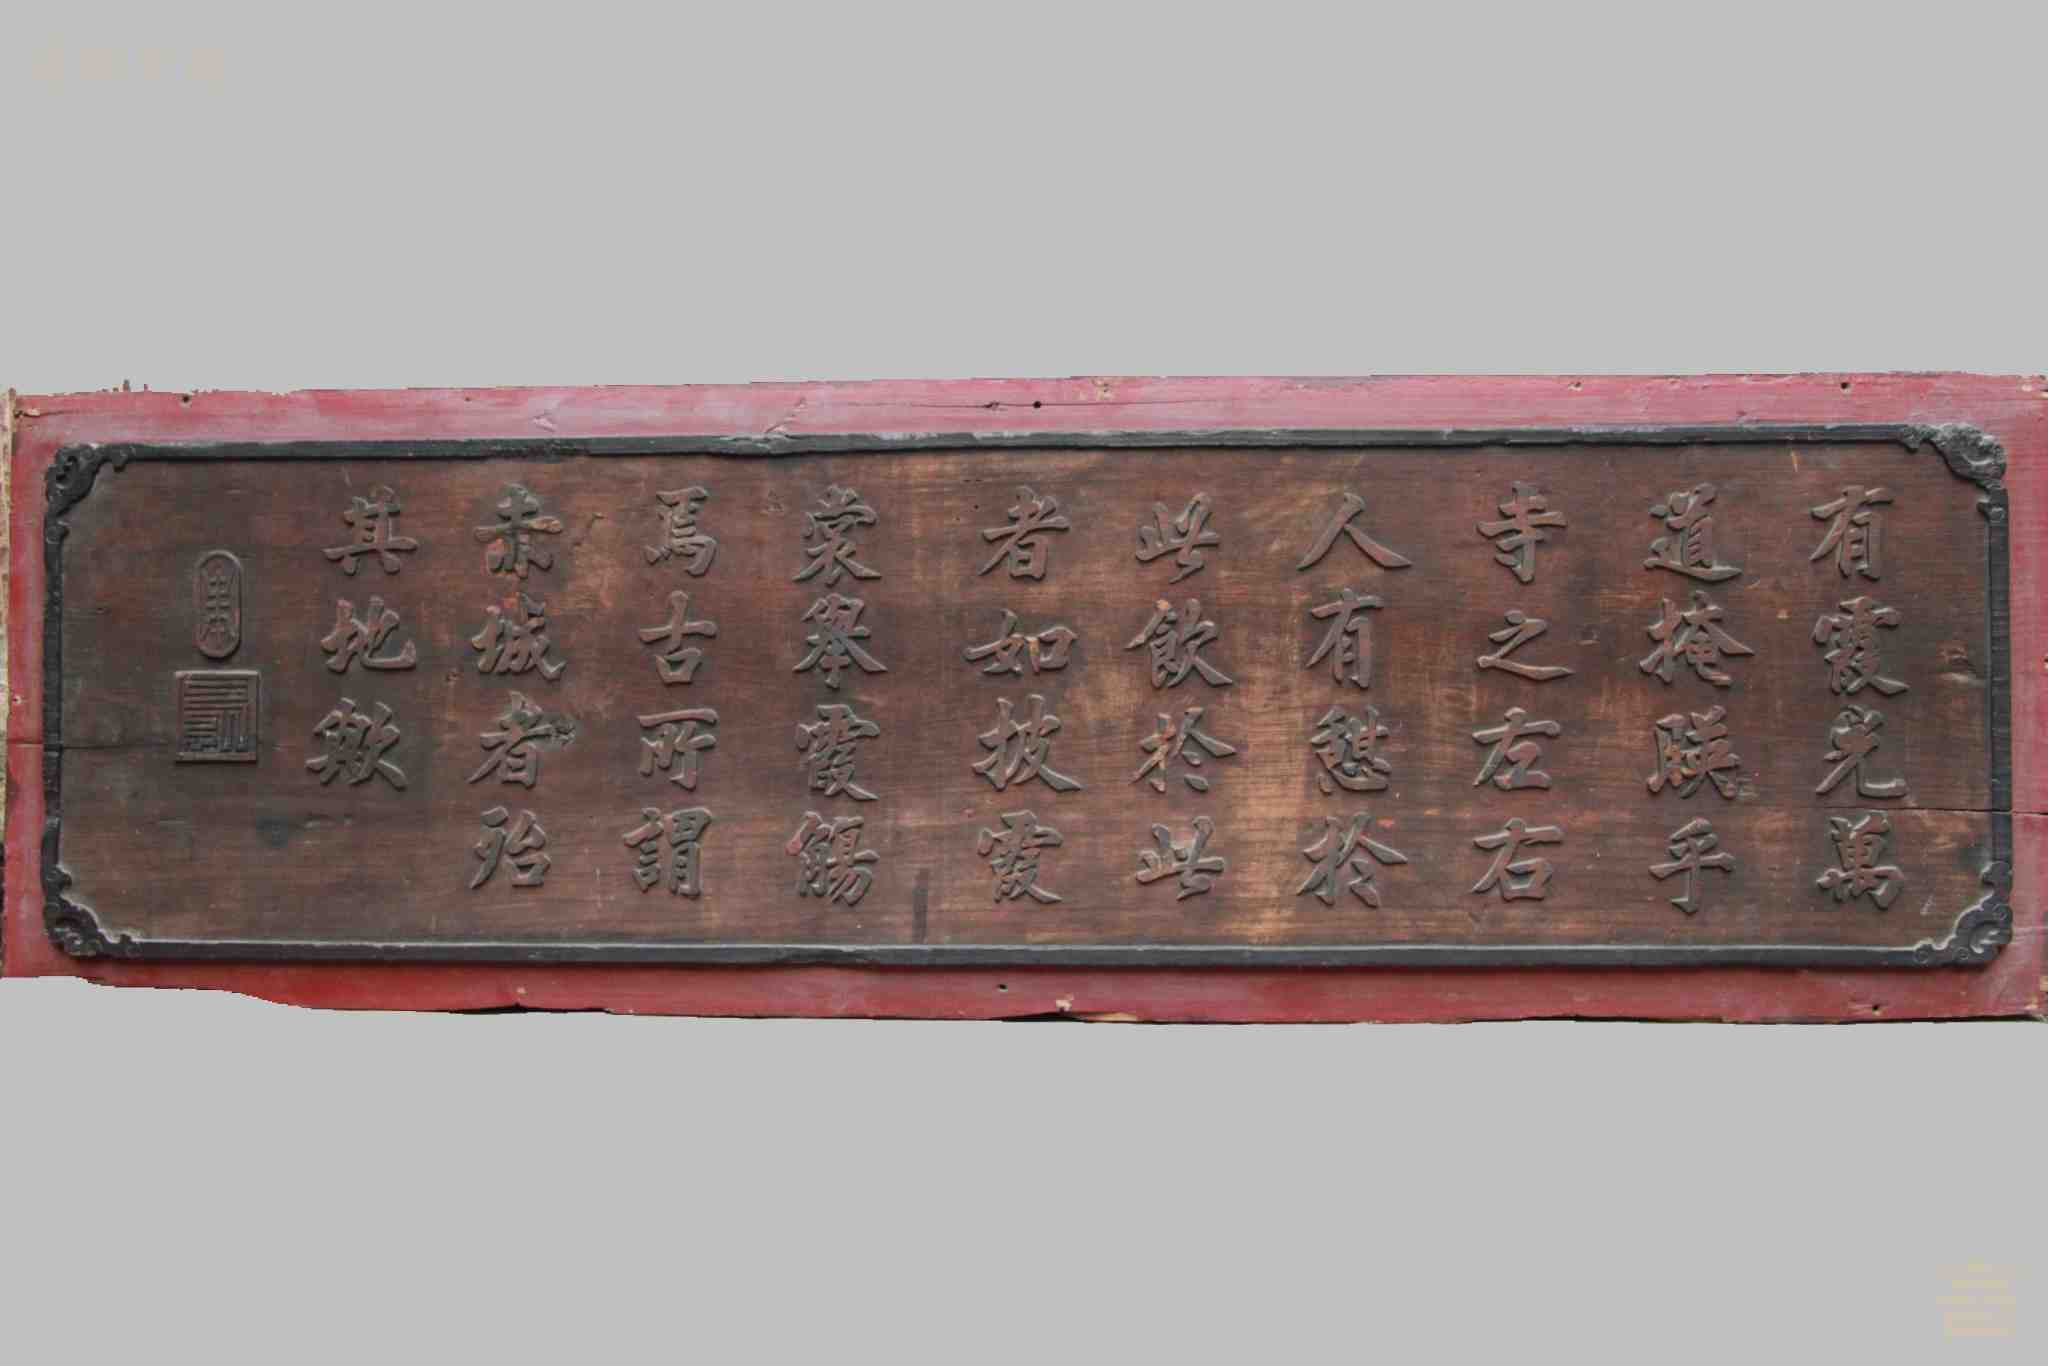 有霞光萬
道掩暎乎
寺之左右
人有憇於
此飲於此
者如披霞
裳舉霞觴
焉古所謂
赤城者殆
其地歟